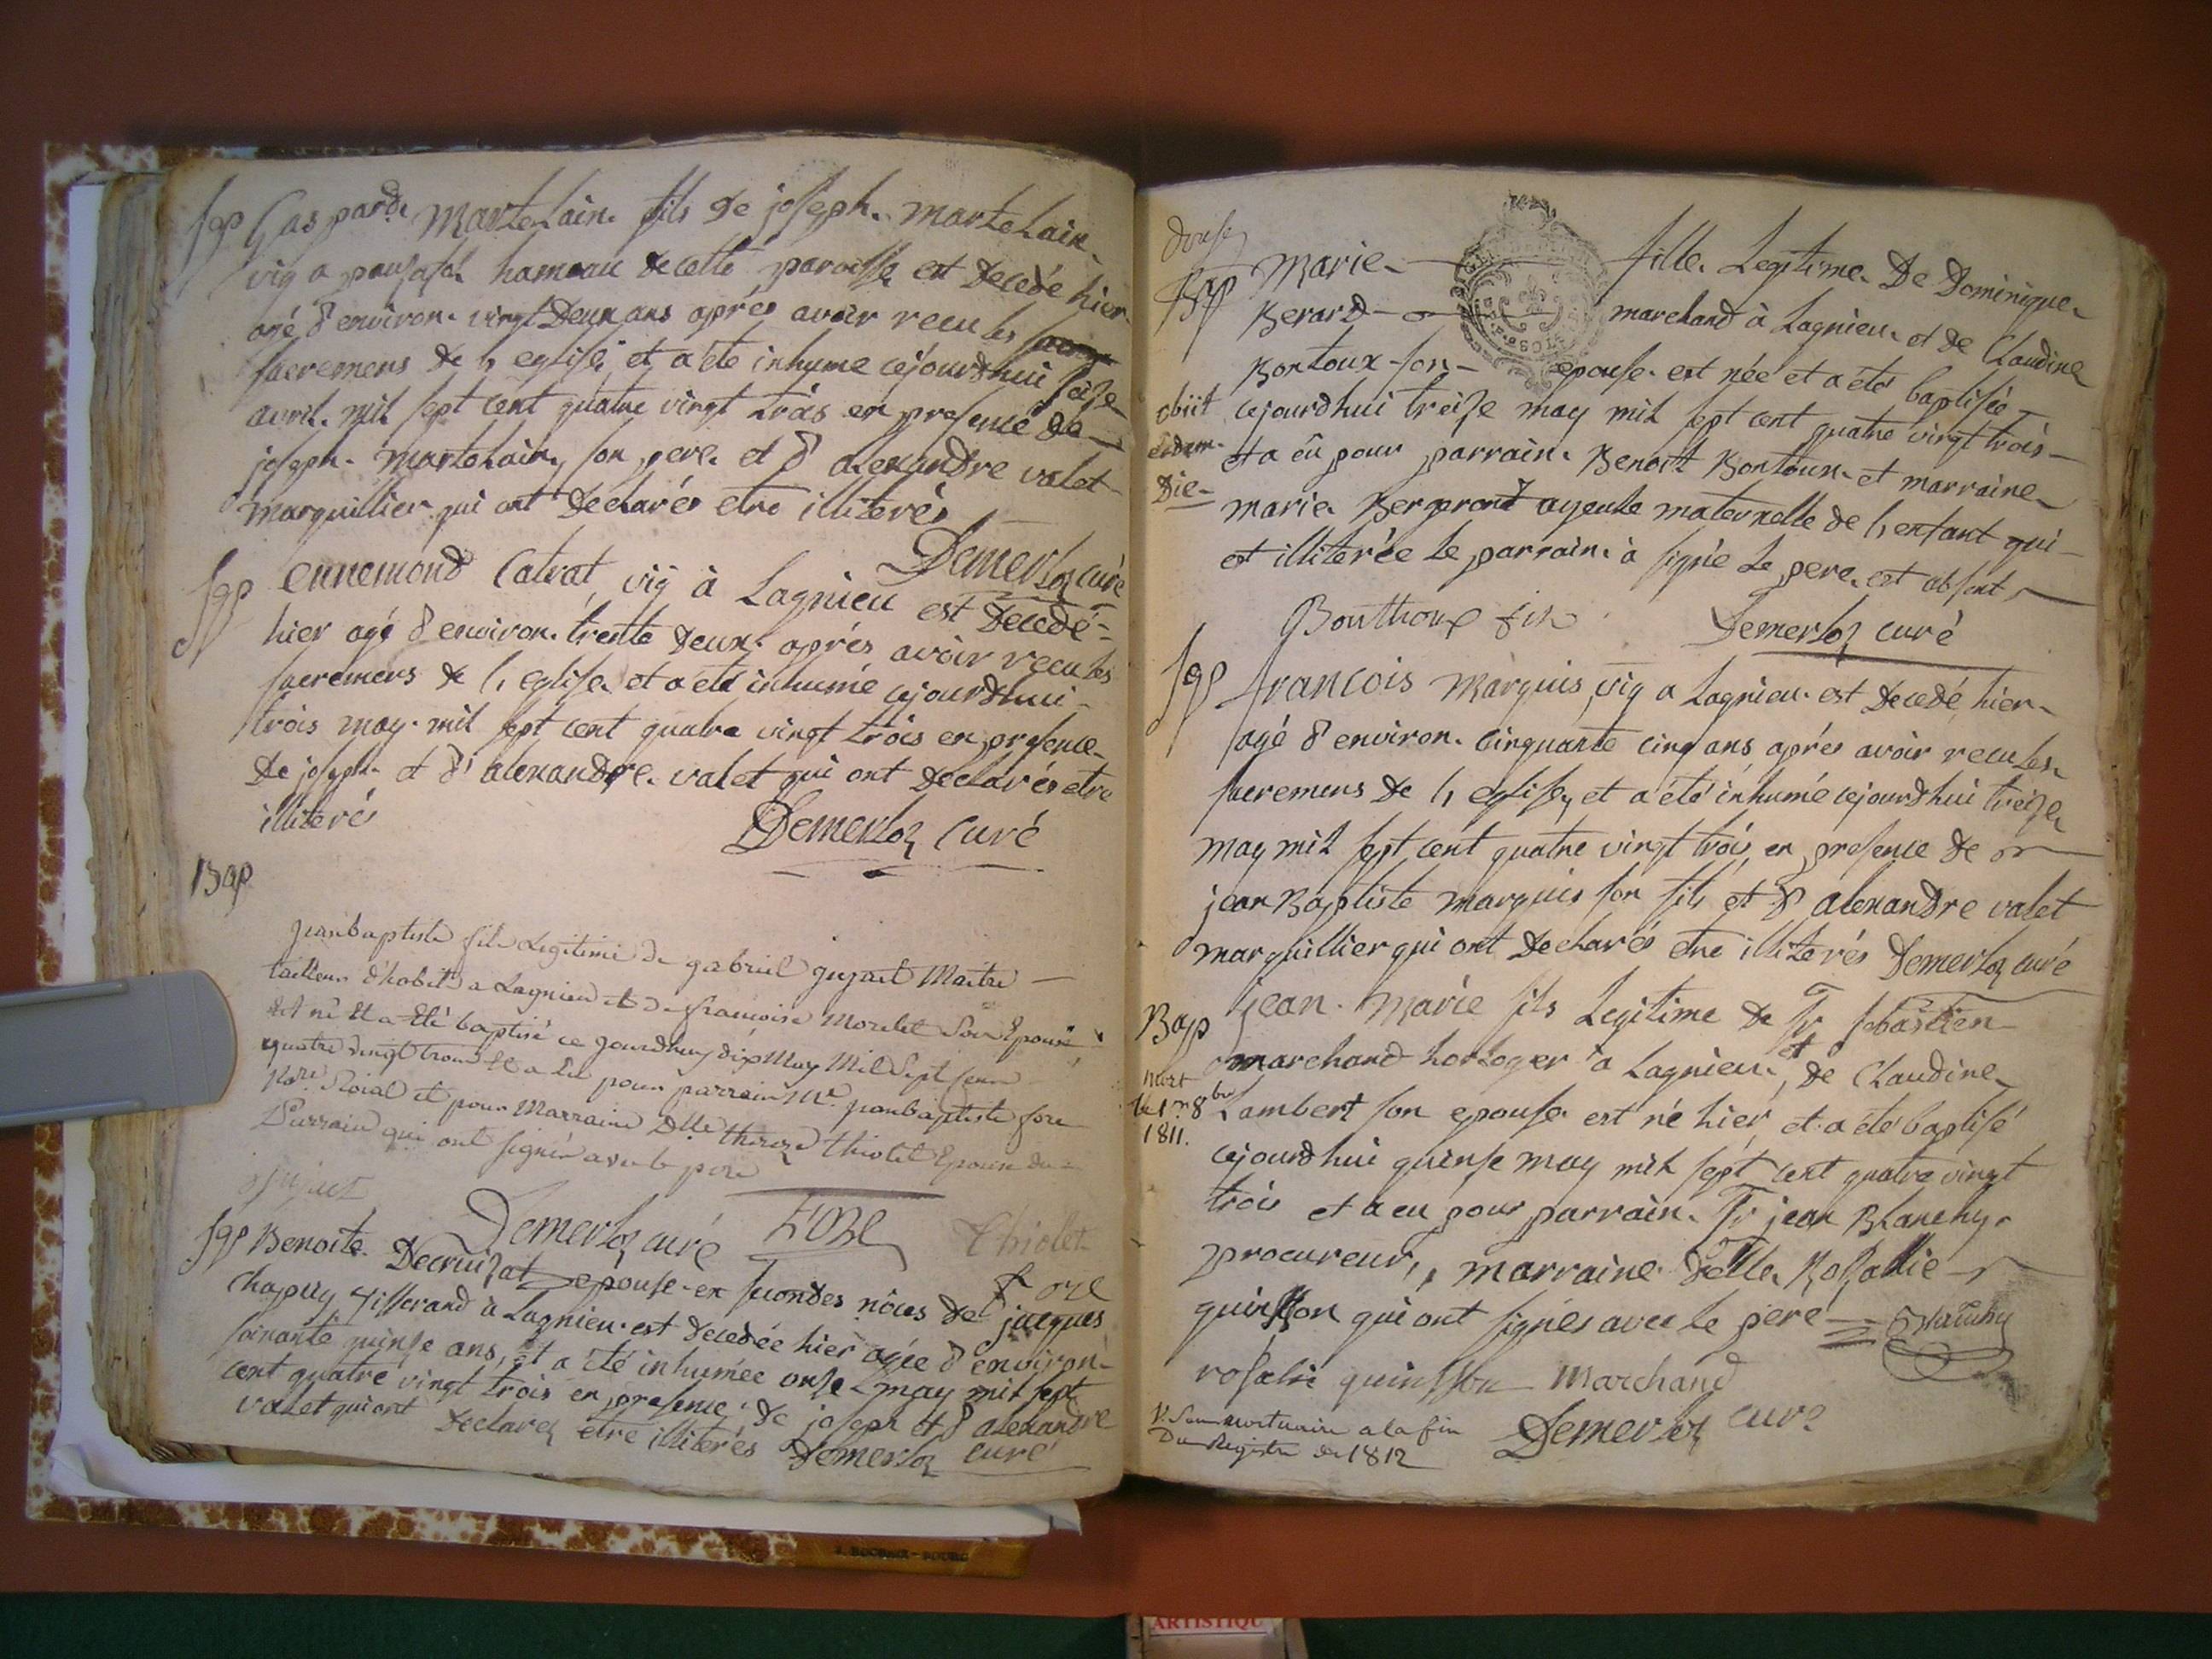 Sep Gaspard Martelain fils de joseph martelain
vig a hameau de cette paroisse est decedé hier
agé d'environ vingt deux ans aprés avoir recu les
sacremens de l'eglise et a été inhumé cejourdhui seize
avril mil sept cent quatre vingt trois en presence de
joseph Martelain son pere et d'alexandre valet
marguillier qui ont declarés etre illiterés
Demerloz curé
Sep ennemond Calvat vig à Lagnieu est decedé
hier agé d'environ trente deux aprés avoir recu les
sacremens de l'eglise et a été inhumé cejourdhui
trois may mil sept cent quatre vingt trois en presence
de joseph et d'alexandre valet qui ont declarés etre
illiterés
Demerloz Curé
Bap
jeanbaptiste fils Legitime de gabriel jujact Maitre
tailleur d'habits a Lagnieu et de francoise Morelet Son Epouse
est né et a été baptisé ce jourdhuy dix May Mil Sept Cent
quatre vingt trois et a eu pour parrain Me. jeanbaptiste fore
Nore. Roial et pour Marraine Dlle thereze thiolet Epouse du
Parrain qui ont signés avec le pere
jujact
Demerloz curé FORE Thiollet
fore
Sep Benoite Decruisat epouse en secondes nôces de jacques
Chapuy tisserand à Lagnieu est decedée hier agée d'environ
soixante quinse ans, et a été inhumée onse may mil sept
cent quatre vingt trois en presence de joseph et d'alexandre
valet qui ont declarez etre illiterés Demerloz curé
douse
Bap Marie fille Legitime De Dominique
Berard marchand à Lagnieu et de Claudine
Bontoux son epouse est née et a été baptisée
obiit
eadem
Die
cejourdhui treise may mil sept cent quatre vingt trois
et a eû pour parrain Benoit Bontoux et marraine
marie ayeule maternelle de l'enfant qui
est illiterée le parrain a signé le pere est absent
Bonthoux fils Demerloz curé
Sep francois Marquis vig a Lagnieu est decedé hier
agé d'environ cinquante cinq ans aprés avoir recu les
sacremens de l'eglise, et a été inhumé cejourdhui treize
may mil sept cent quatre vingt trois en presence de
jean Baptiste marquis son fils et d'alexandre valet
marguillier qui ont declarés etre illiterés Demerloz curé
Bap jean Marie fils Legitime de Sr Sebastien
marchand horloger a Lagnieu et de Claudine
Mort
le 1er 8bre
1811.
Lambert son epouse est né hier, et a été baptisé
cejourdhui quinse may mil sept cent quatre vingt
trois et a eu pour parrain Sr jean Blanchy
procureur, marraine delle Rosalie
quinsson qui ont signés avec le pere Blanchy
rosalie quinsson Marchand
V. Son mortuaire a la fin
Du Registre de 1812
Demerloz curé
ARTISTIQU